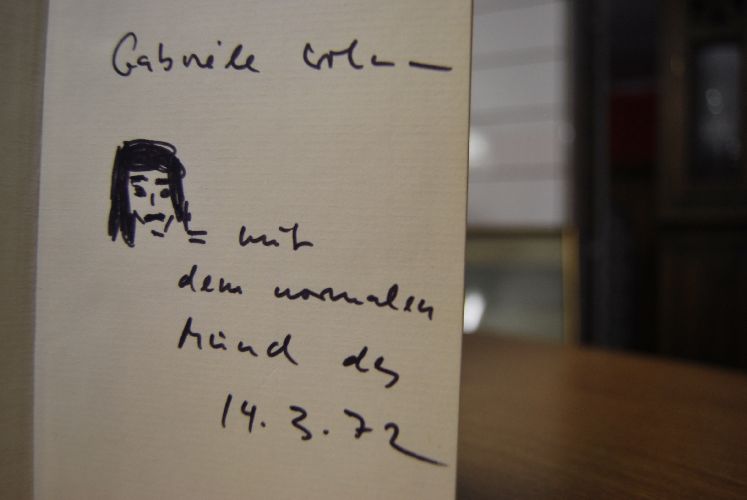 Gabriele
= mit
dem normalen
Mund des
14.3.72